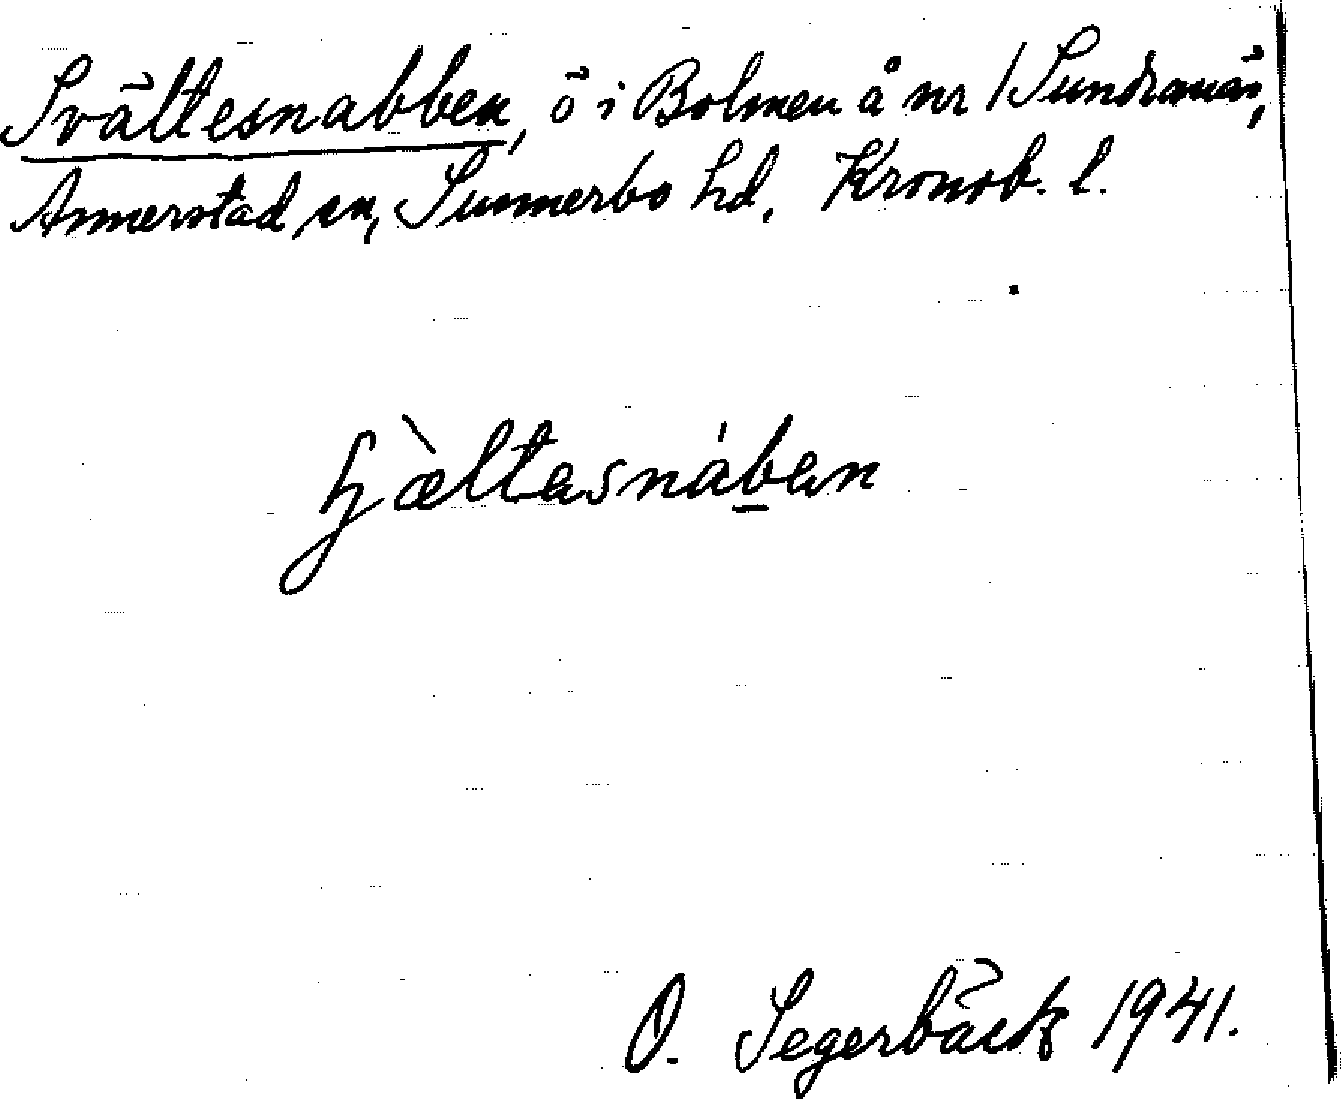 Svältesnabben, ö i Bolmen å nr 1 Sundranäs,
Annerstad sn, Sunnerbo hd, Kronob. l.
fjæ̀ltasnában
O. Segerbäck 1941.